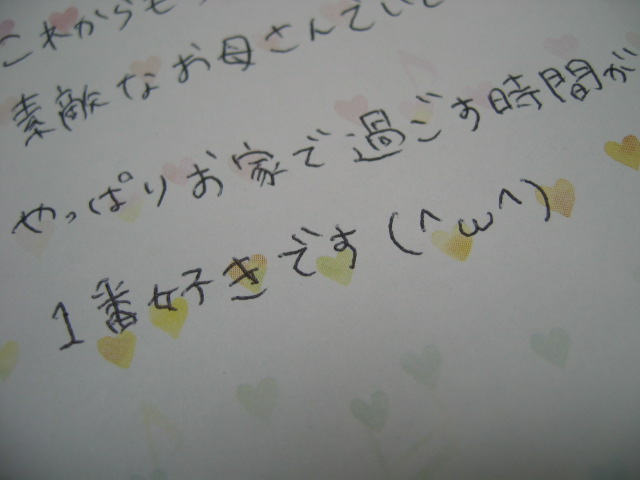 これからも
素敵なお母さんでいて
やっぱりお家で過ごす時間が
1番好きです(^ω^)